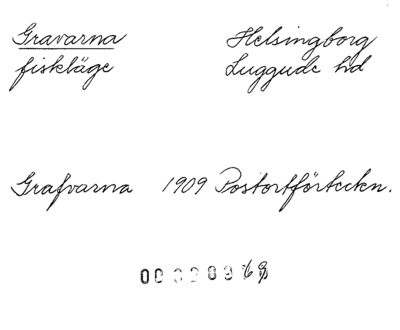 Gravarna Helsingborg
fiskläge Luggude hd
Grafvarna 1909 Postortförteckn.